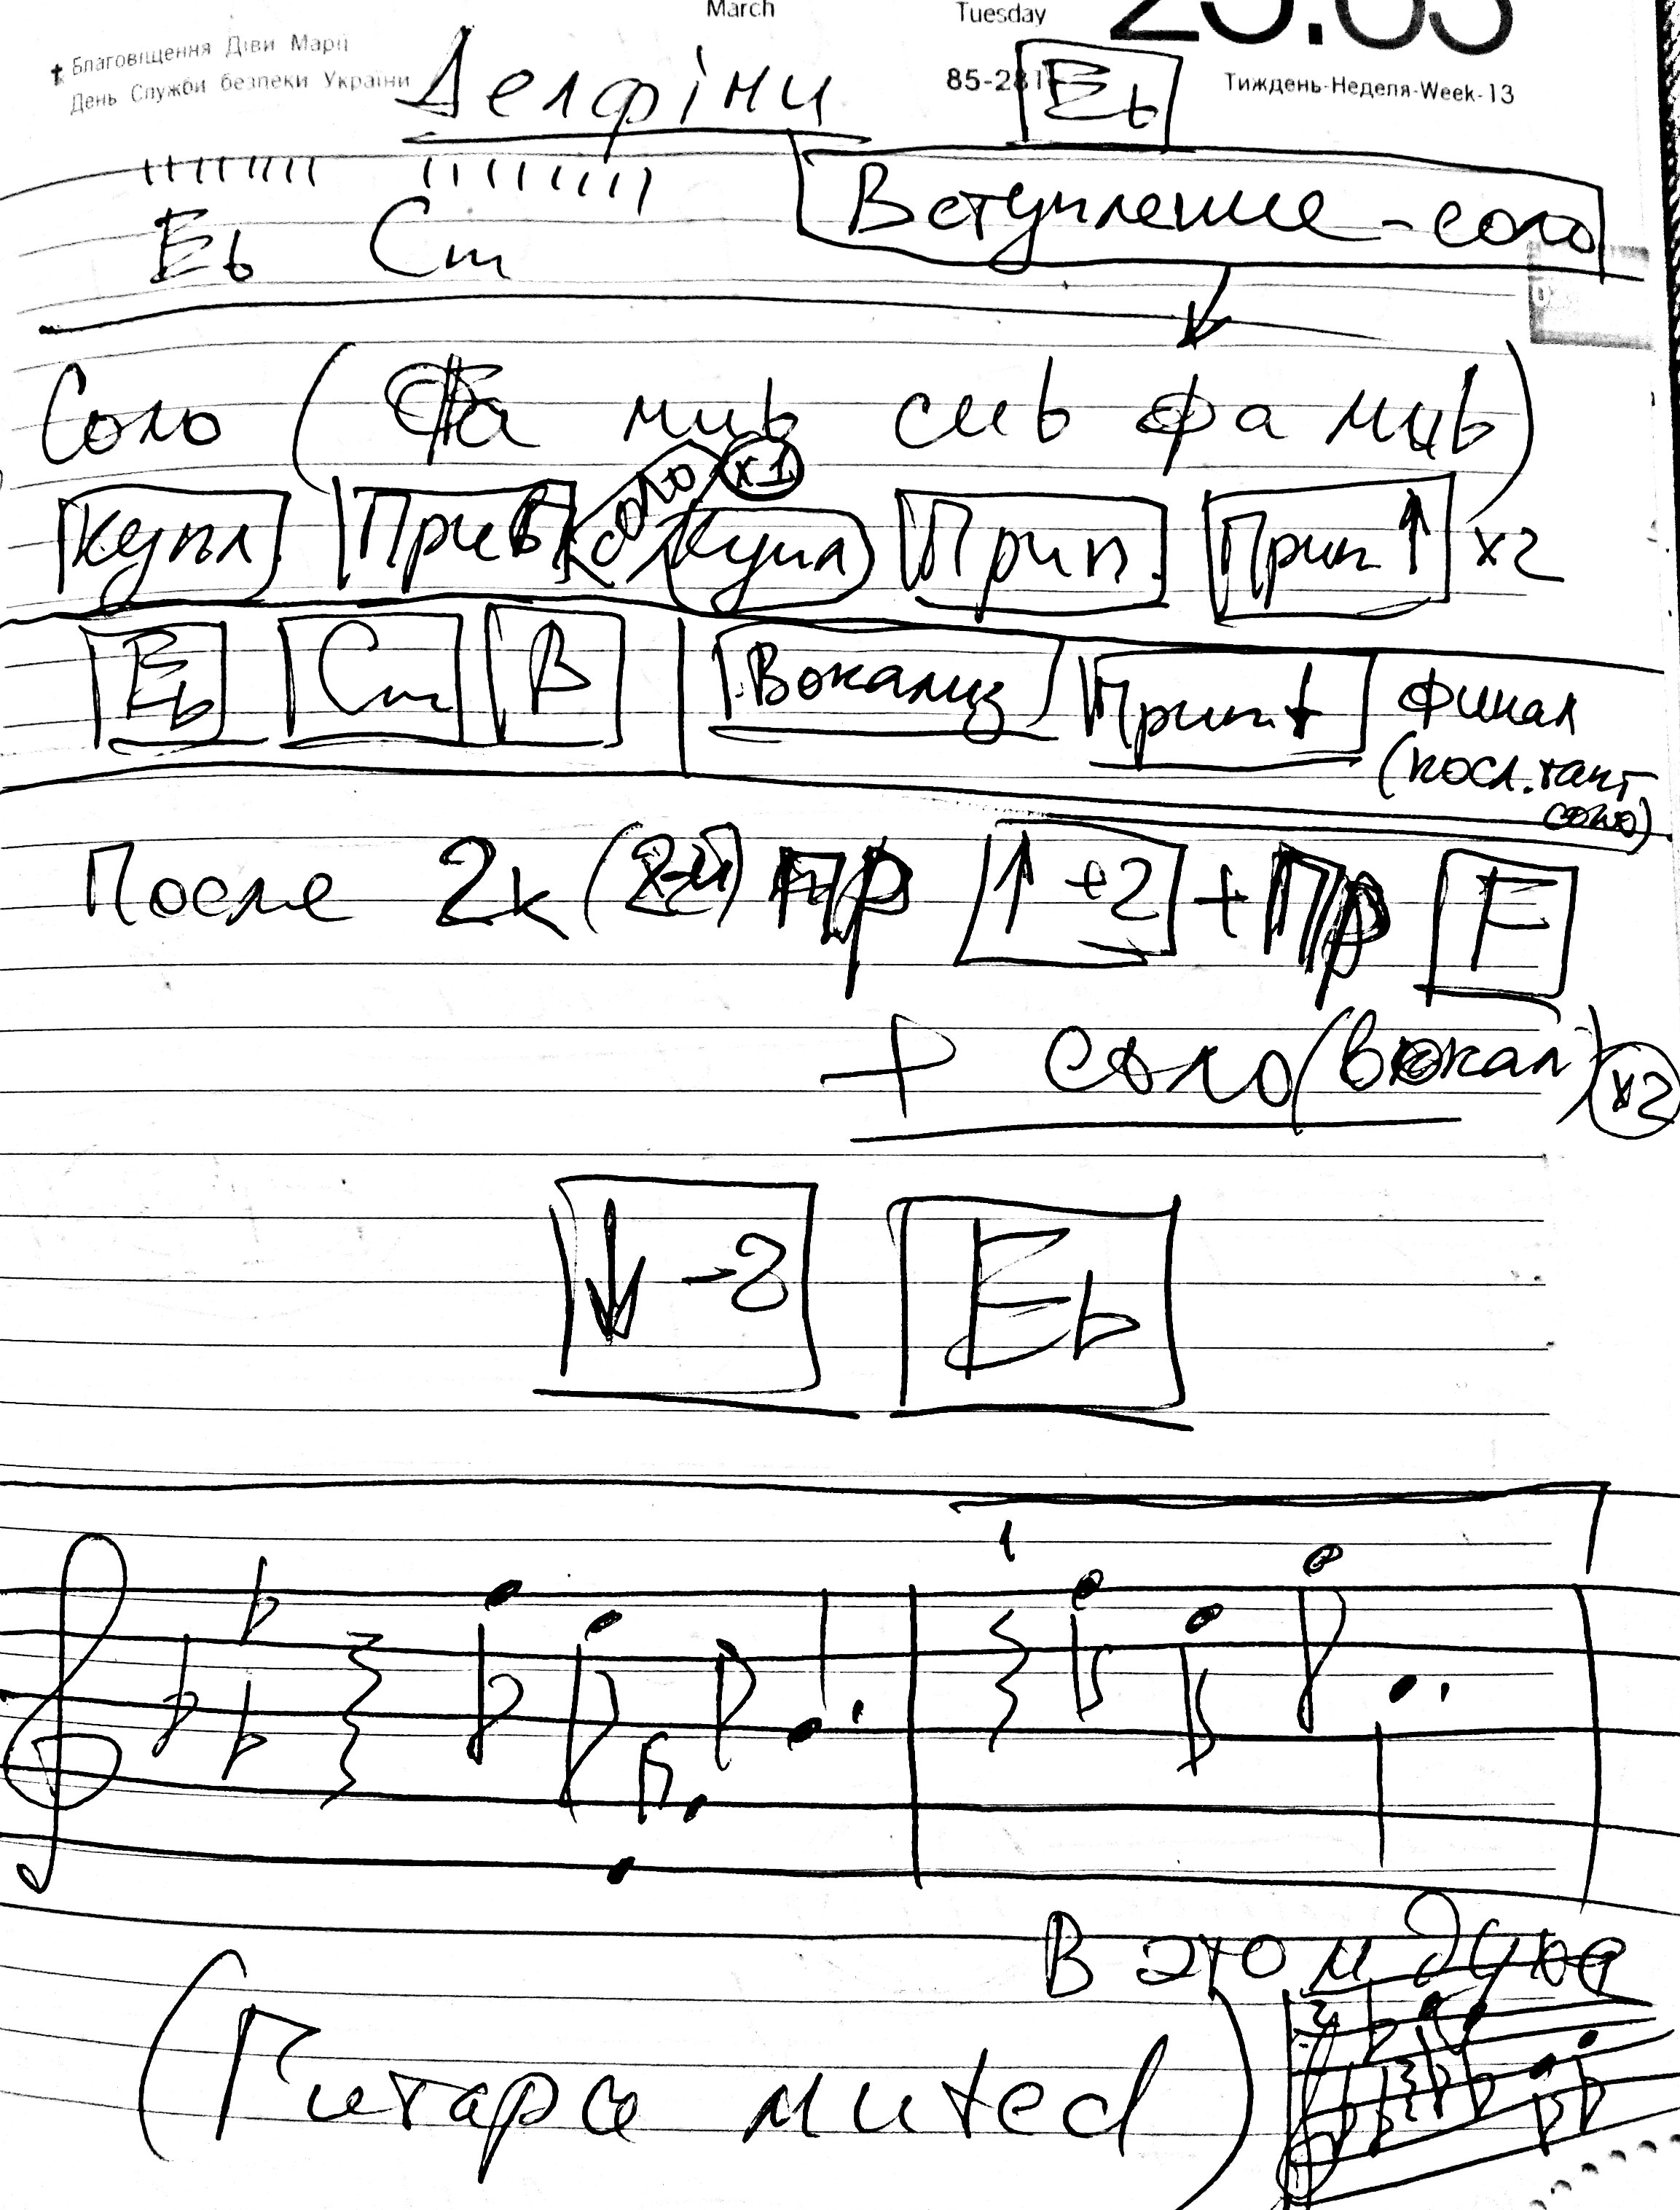 March Tuesday 25.03
✝ Благовіщення Діви Марії
День Служби безпеки України
85-281
Тиждень-Неделя-Week-13
Делфіни Eb
Eb Cm Вступление-соло
Соло (Фа миb сиb фа миb)
соло x1
Купл Прип Купл Прип. Прип↑ x2
Eb Cm B Вокализ Прип↑ Финал
(посл. такт
соло)
После 2к (2-й) пр ↑+2 + Пр F
+ соло (вокал) x2
↓-2 Eb
В этом духе
(Гитара muted)